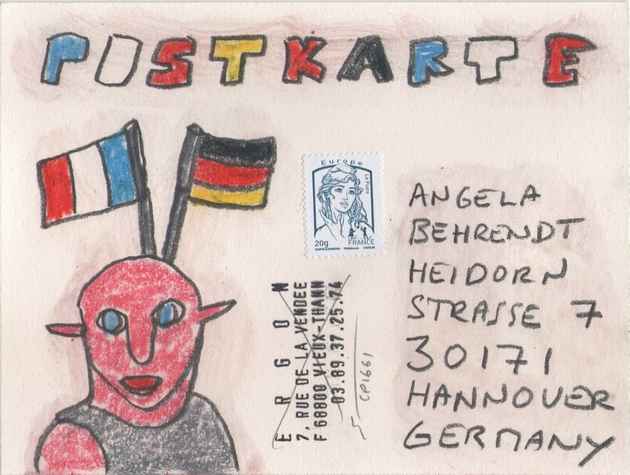 POSTKARTE
Europe
LETTRE
20g
FRANCE
ERGON
7, RUE DE LA VENDEE
F 68800 VIEUX-THANN
03.89.37.25.74
CP1661
ANGELA
BEHRENDT
HEIDORN
STRASSE 7
30171
HANNOVER
GERMANY